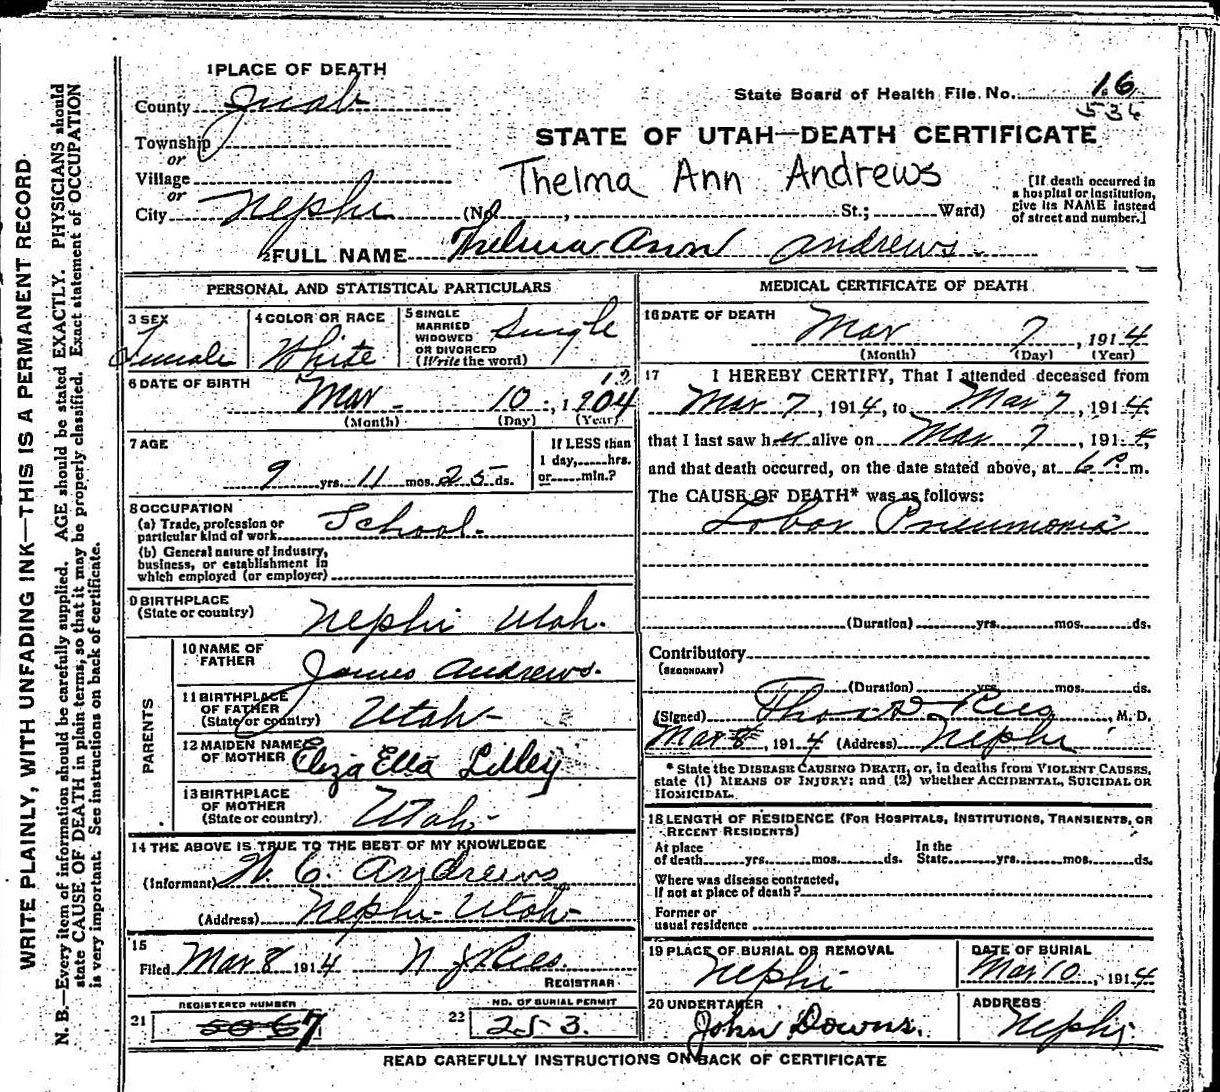 WRITE PLAINLY, WITH UNFADING INK—THIS IS A PERMANENT RECORD
N. B.—Every item of information should be carefully supplied. AGE should be stated EXACTLY. PHYSICIANS should
state CAUSE OF DEATH in plain terms, so that it may be properly classified. Exact statement of OCCUPATION
is very important. See instructions on back of certificate.
1 PLACE OF DEATH
County Juab
State Board of Health File No. 16
536
Township
or
Village
or
STATE OF UTAH—DEATH CERTIFICATE
Thelma Ann Andrews
City Nephi (No. , St.; Ward)
[If death occurred in
a hospital or institution,
give its NAME instead
of street and number.]
2 FULL NAME Thelma Ann Andrews.
PERSONAL AND STATISTICAL PARTICULARS
3 SEX
Female
4 COLOR OR RACE
White
5 SINGLE
MARRIED
WIDOWED
OR DIVORCED
(Write the word)
Single
6 DATE OF BIRTH
Mar 10, 1904
(Month) (Day) (Year)
7 AGE
9 yrs. 11 mos. 25 ds.
If LESS than
1 day, hrs.
or min.?
8 OCCUPATION
(a) Trade, profession or
particular kind of work School.
(b) General nature of industry,
business, or establishment in
which employed (or employer)
9 BIRTHPLACE
(State or country) Nephi Utah.
PARENTS
10 NAME OF
FATHER James Andrews.
11 BIRTHPLACE
OF FATHER
(State or country) Utah-
12 MAIDEN NAME
OF MOTHER Eliza Ella Lilley
13 BIRTHPLACE
OF MOTHER
(State or country) Utah-
14 THE ABOVE IS TRUE TO THE BEST OF MY KNOWLEDGE
(Informant) W. C. Andrews
(Address) Nephi - Utah-
15
Filed Mar 8 1914 N J Rees.
REGISTRAR
21 REGISTERED NUMBER
7
22 NO. OF BURIAL PERMIT
253.
MEDICAL CERTIFICATE OF DEATH
16 DATE OF DEATH
Mar 7, 1914
(Month) (Day) (Year)
17 I HEREBY CERTIFY, That I attended deceased from
Mar 7, 1914, to Mar 7, 1914
that I last saw her alive on Mar 7, 1914,
and that death occurred, on the date stated above, at 6 P. m.
The CAUSE OF DEATH* was as follows:
Lobar Pneumonia
(Duration) yrs. mos. ds.
Contributory
(SECONDARY)
(Duration) yrs. mos. ds.
(Signed) Thos D Rees, M. D.
Mar 8, 1914 (Address) Nephi
* State the DISEASE CAUSING DEATH, or, in deaths from VIOLENT CAUSES,
state (1) MEANS OF INJURY; and (2) whether ACCIDENTAL, SUICIDAL OR
HOMICIDAL.
18 LENGTH OF RESIDENCE (FOR HOSPITALS, INSTITUTIONS, TRANSIENTS, OR
RECENT RESIDENTS)
At place
of death yrs. mos. ds.
In the
State yrs. mos. ds.
Where was disease contracted,
if not at place of death?
Former or
usual residence
19 PLACE OF BURIAL OR REMOVAL
Nephi
DATE OF BURIAL
Mar 10, 1914
20 UNDERTAKER
John Downs.
ADDRESS
Nephi.
READ CAREFULLY INSTRUCTIONS ON BACK OF CERTIFICATE